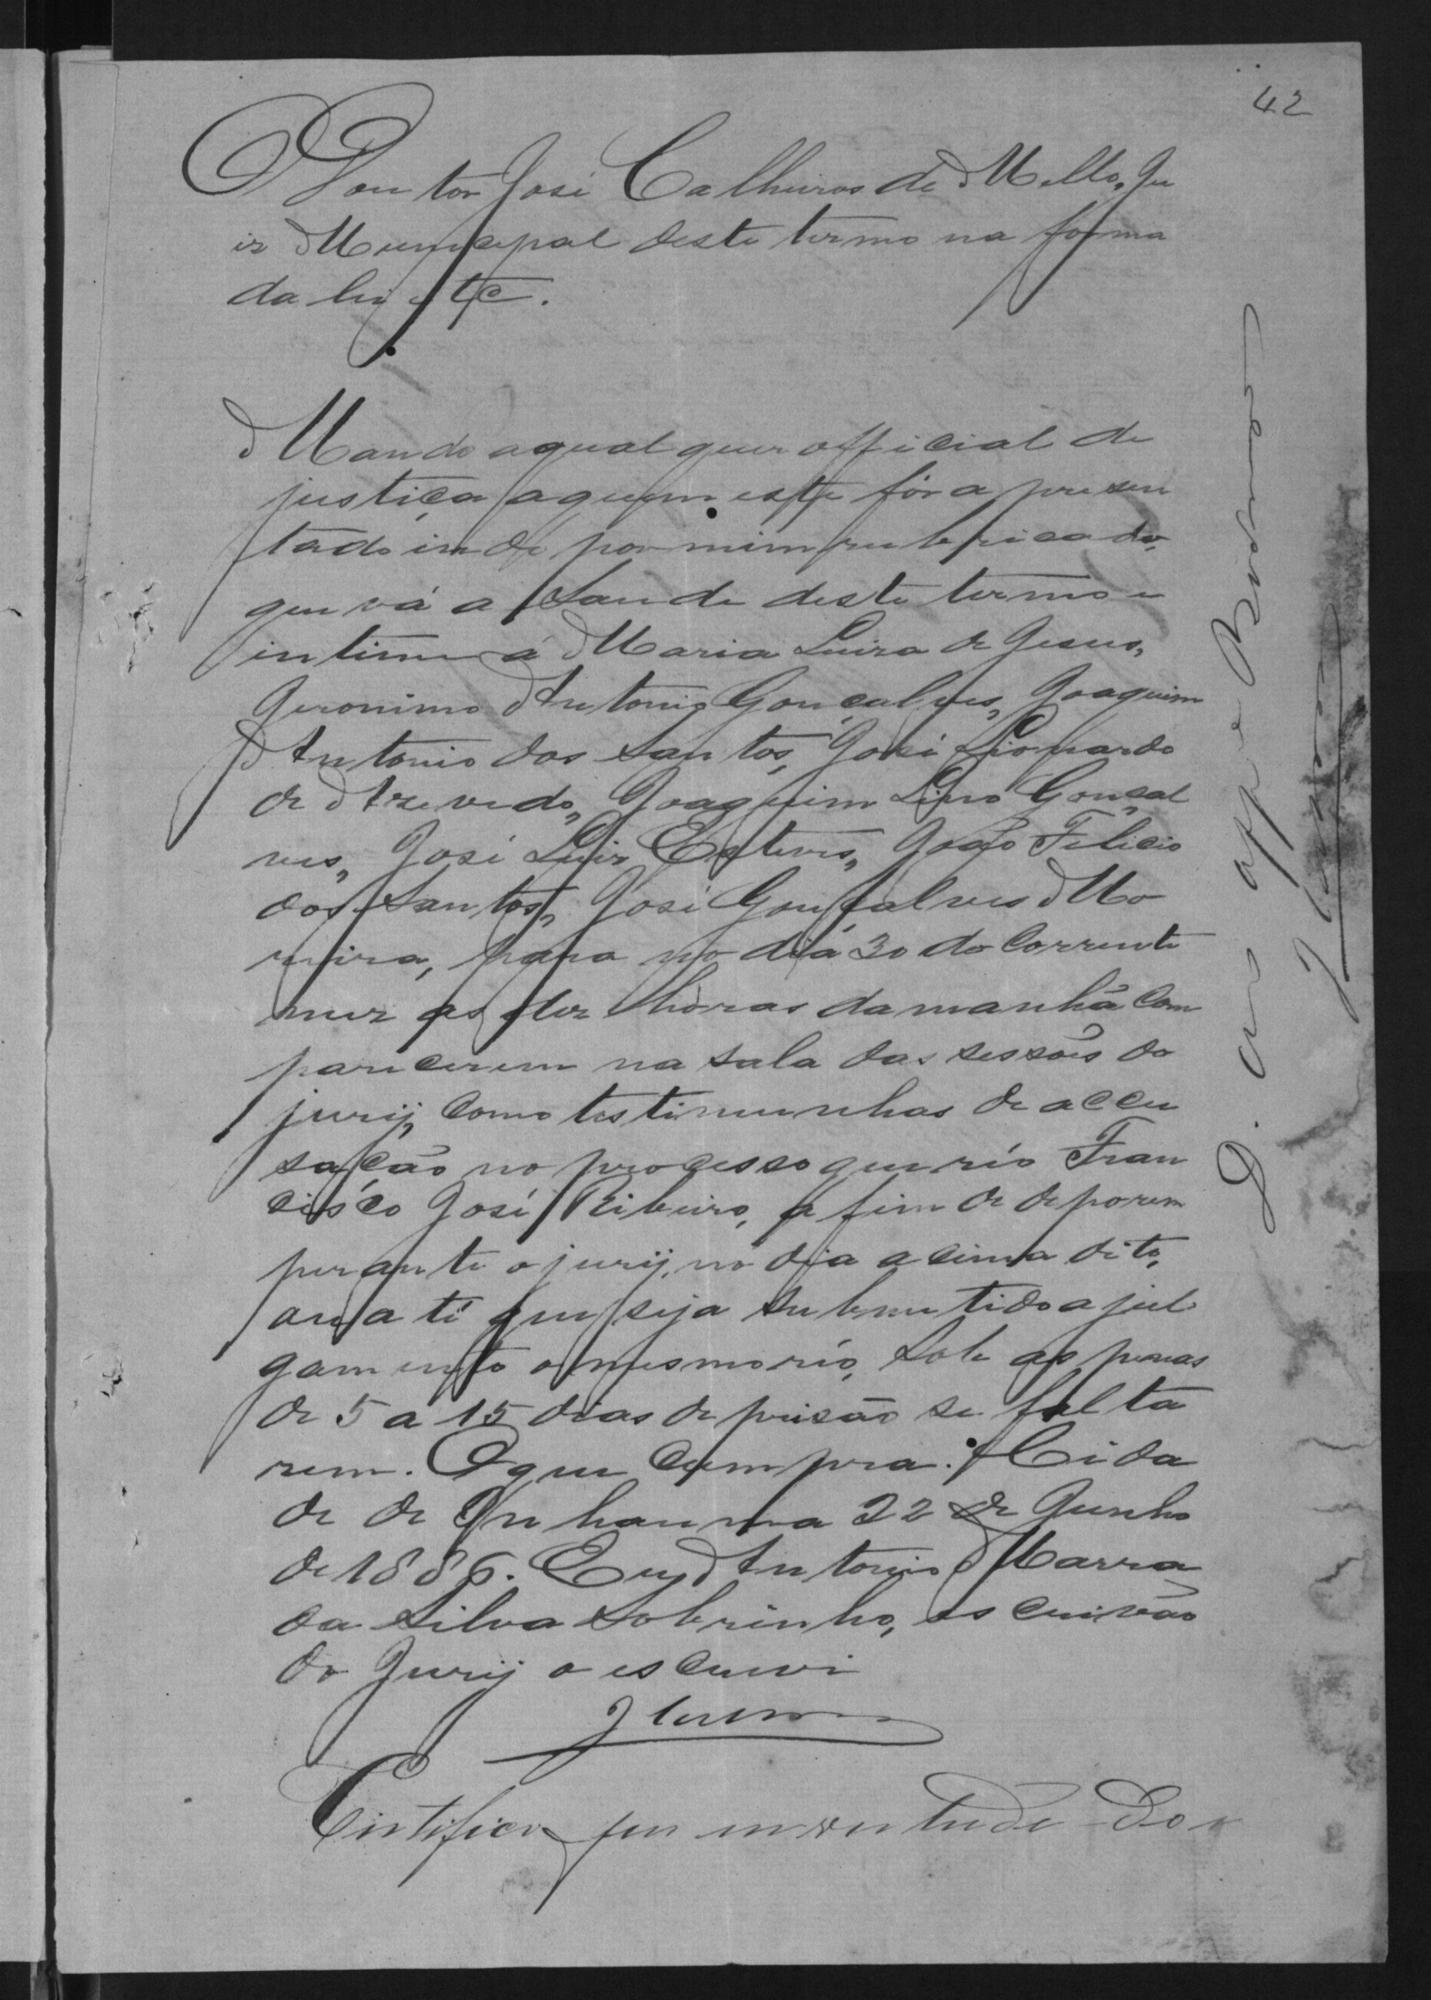 42
O Doutor José Calheiros de Mello, Ju
iz Municipal deste termo na forma
da lei etc.
Mando a qual quer official de
justiça a quem este fôr apresen
tado indo por mim rubricado,
que vá a Saude deste termo e
intime á Maria Luiza de Jesus,
Geronimo Antonio Gonçalves, Joaquim
Antonio dos Santos, José Leonardo
de Azevedo, Joaquim Lino Gonçal
ves, José Luiz Esteves, João Felicio
dos Santos, José Gonçalves Mo
reira, para no dia 30 do corrente
mez as dez horas da manhã com
parecerem na sala das sessões do
jury, como testimunhas de accu
sação no processo que réo Fran
cisco José Ribeiro, a fim de deporem
perante o jury, no dia acima dito,
ou a té que seja submetido a jul
gamento o mesmo réo, sob as penas
de 5 a 15 dias de prisão se falta
rem. O que cumpra. Cida
de de Inhauma 22 de Junho
de 1886. Eu Antonio Marra
da Silva Sobrinho, escrivão
do Jury o escrevi
Certifico que em vertude do
D. aos